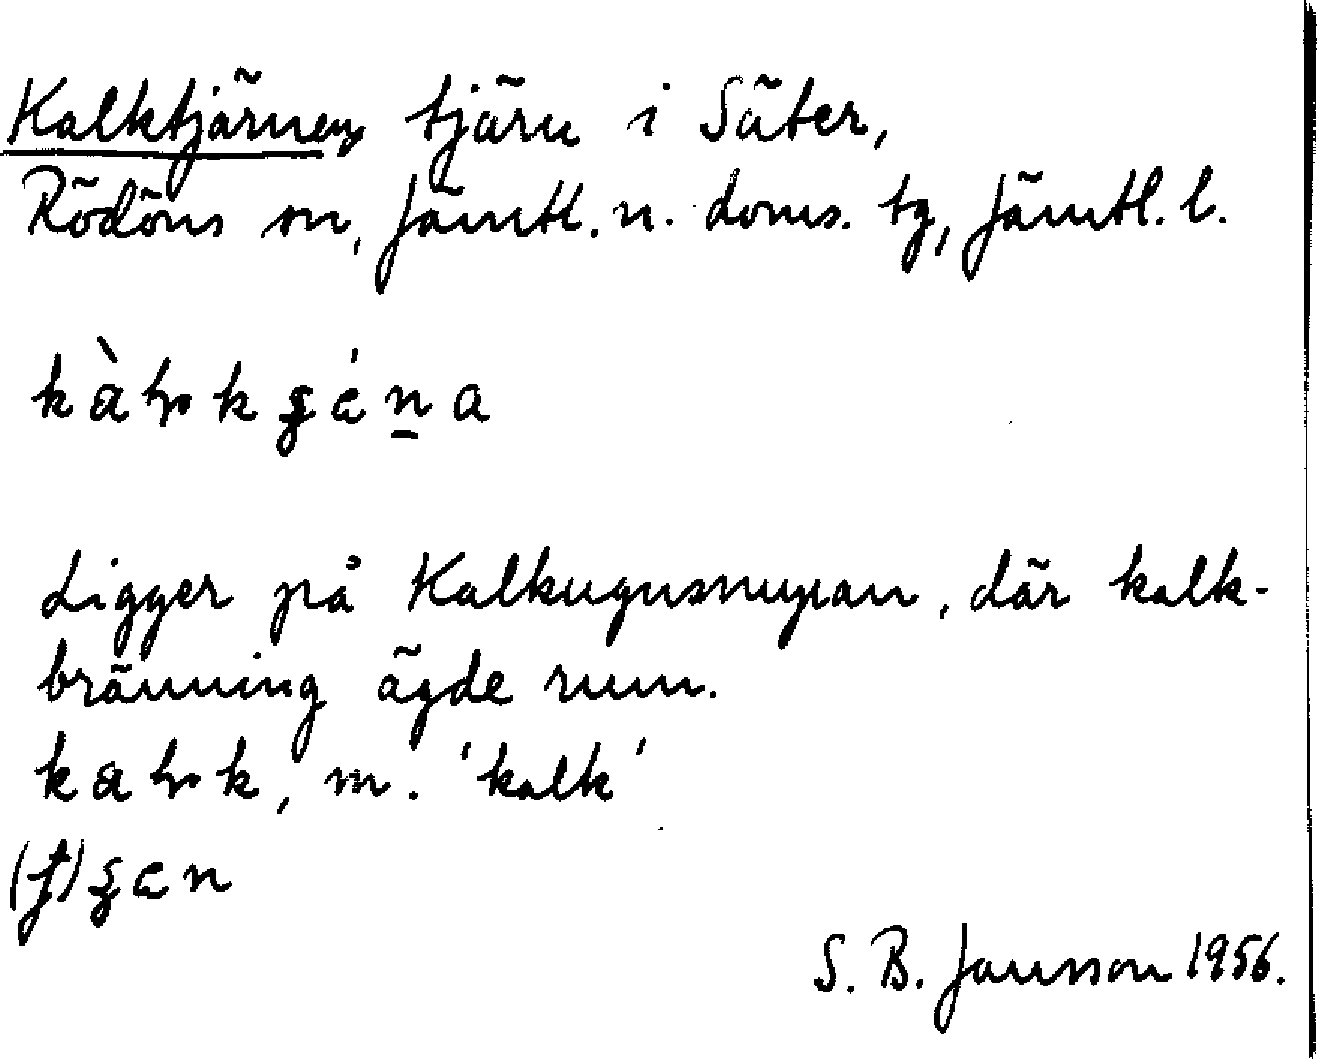 Kalktjärnen, tjärn i Säter,
Rödöns sn, Jämtl. n. doms. tg, Jämtl. l.
Ligger på Kalkugnsmyran, där kalk-
bränning ägde rum.
m. 'kalk'
S. B. Jansson 1956.